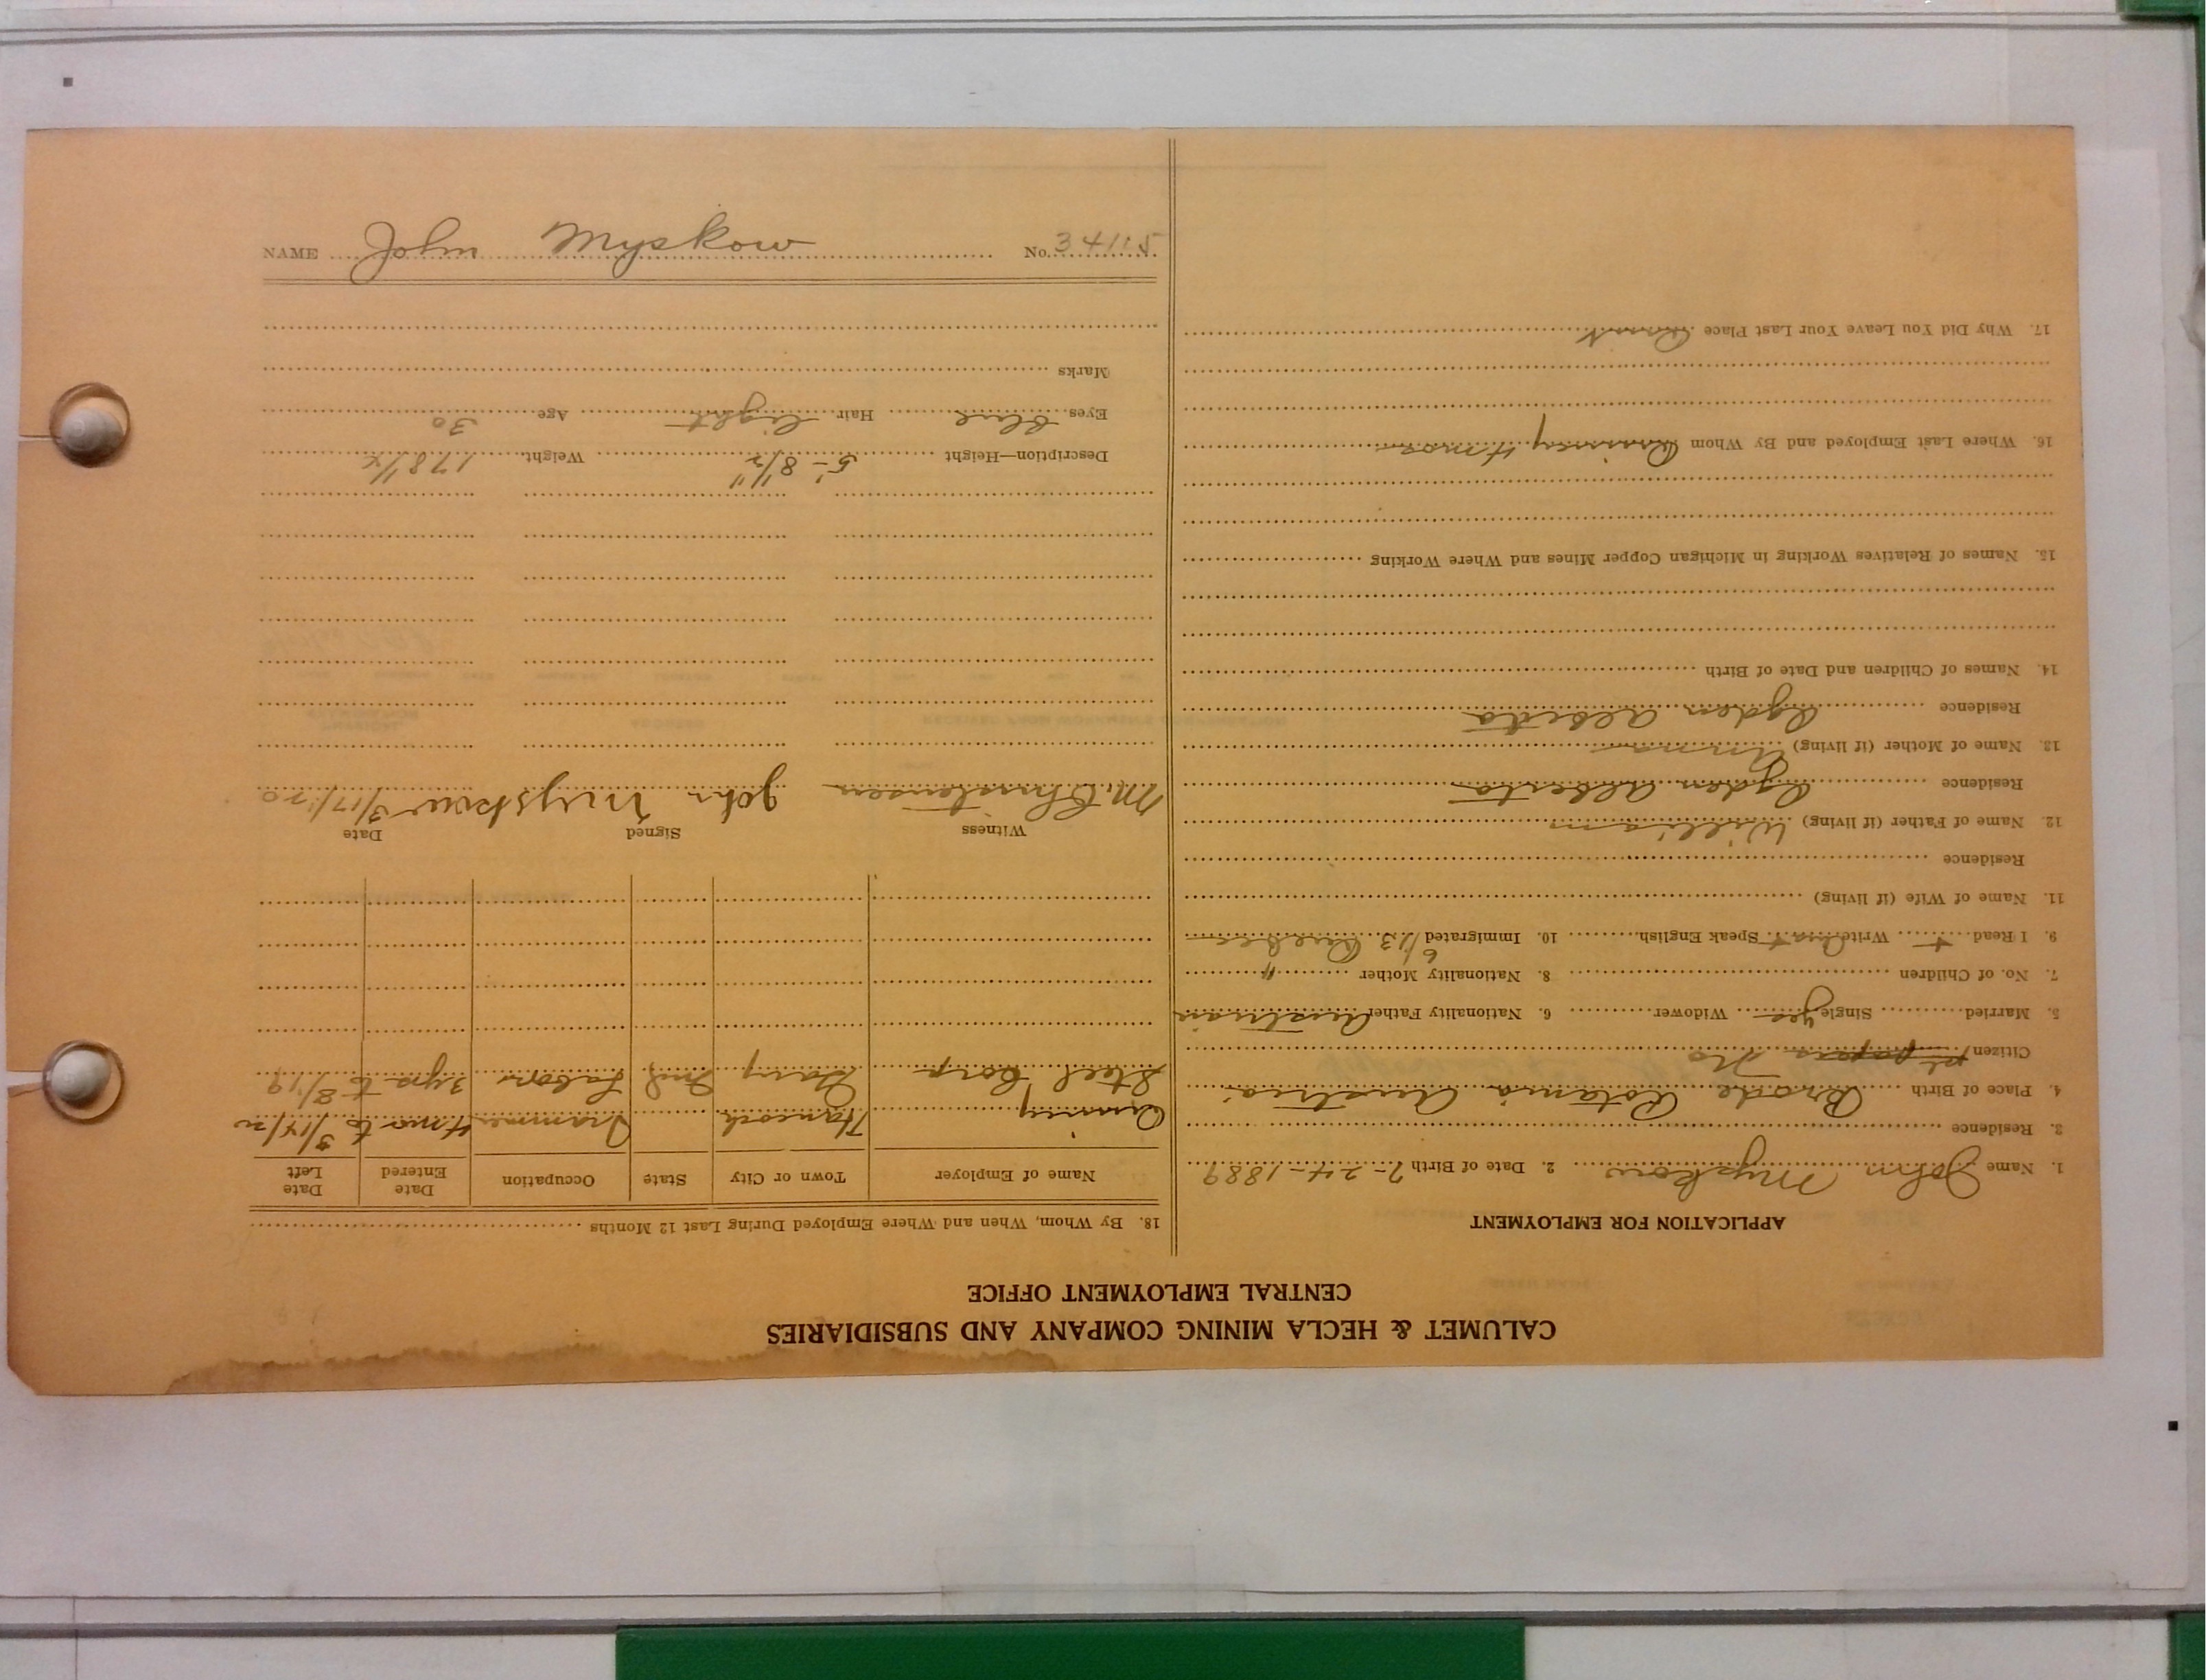 CALUMET & HECLA MINING COMPANY AND SUBSIDIARIES
CENTRAL EMPLOYMENT OFFICE
APPLICATION FOR EMPLOYMENT
1. Name John Myskow 2. Date of Birth 7-24-1889
3. Residence
4. Place of Birth Brode Austria
Citizen papers No
5. Married Single yes Widower 6. Nationality Father Austrian
7. No. of Children 8. Nationality Mother "
9. I Read + Write Speak English 10. Immigrated 6/13 Quebec
11. Name of Wife (if living)
Residence
12. Name of Father (if living) William
Residence Ogden Alberta
13. Name of Mother (if living) Anna
Residence Ogden Alberta
14. Names of Children and Date of Birth
15. Names of Relatives Working in Michigan Copper Mines and Where Working
16. Where Last Employed and By Whom Quincy 4 mos
17. Why Did You Leave Your Last Place Quit
18. By Whom, When and Where Employed During Last 12 Months
Name of Employer Town or City State Occupation Date Entered Date Left
Quincy Hancock Trammer 4 mos to 3/14/20
Steel Corp Gary Ind Labor 3 yrs to 8/19
Witness Signed Date
M. Christensen John Myskow 3/17/20
Description—Height 5'-8 1/2" Weight 178 1/2
Eyes Blue Hair Light Age 30
Marks
NAME John Myskow No. 34115